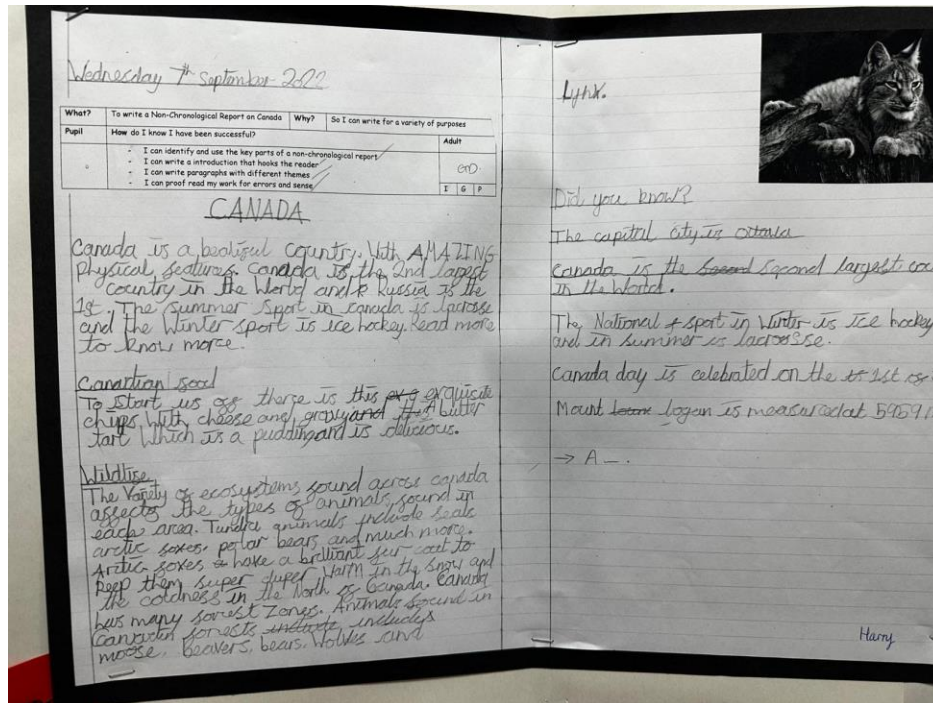 Wednesday 7th September 2022
What? To write a Non-Chronological Report on Canada Why? So I can write for a variety of purposes
Pupil How do I know I have been successful? Adult
- I can identify and use the key parts of a non-chronological report
- I can write a introduction that hooks the reader
- I can write paragraphs with different themes
- I can proof read my work for errors and sense
GD
I G P
CANADA
Canada is a beatiful country. With AMAZING
physical features. Canada is the 2nd largest
country in the World and Russia is the
1st. The summer sport in canada is lacrosse
and the Winter sport is ice hockey. Read more
to know more.
Canadian food
To Start us of there is this exquisite
chips With cheese and gravy and A butter
tart Which is a pudding and is delicious.
Wildlife
The Variety of ecosystems found across canada
affects the types of animals found in
each area. Tundra animals include seals
arctic foxes. polar bears and much more.
Arctic foxes have a brilliant fur coat to
keep them super duper Warm in the snow and
the coldness in the North of Canada. Canada
has many forest Zones. Animals found in
forests include includs
moose. beavers. bears. Wolves and
Lynx.
Did you know?
The capital city is
Canada is the Second Second largest
in the World.
The National sport in Winter is ice hockey
and in Summer is lacrosse.
Canada day is celebrated on the 1st of
Mount logan is measured at 5959
→ A
Harry